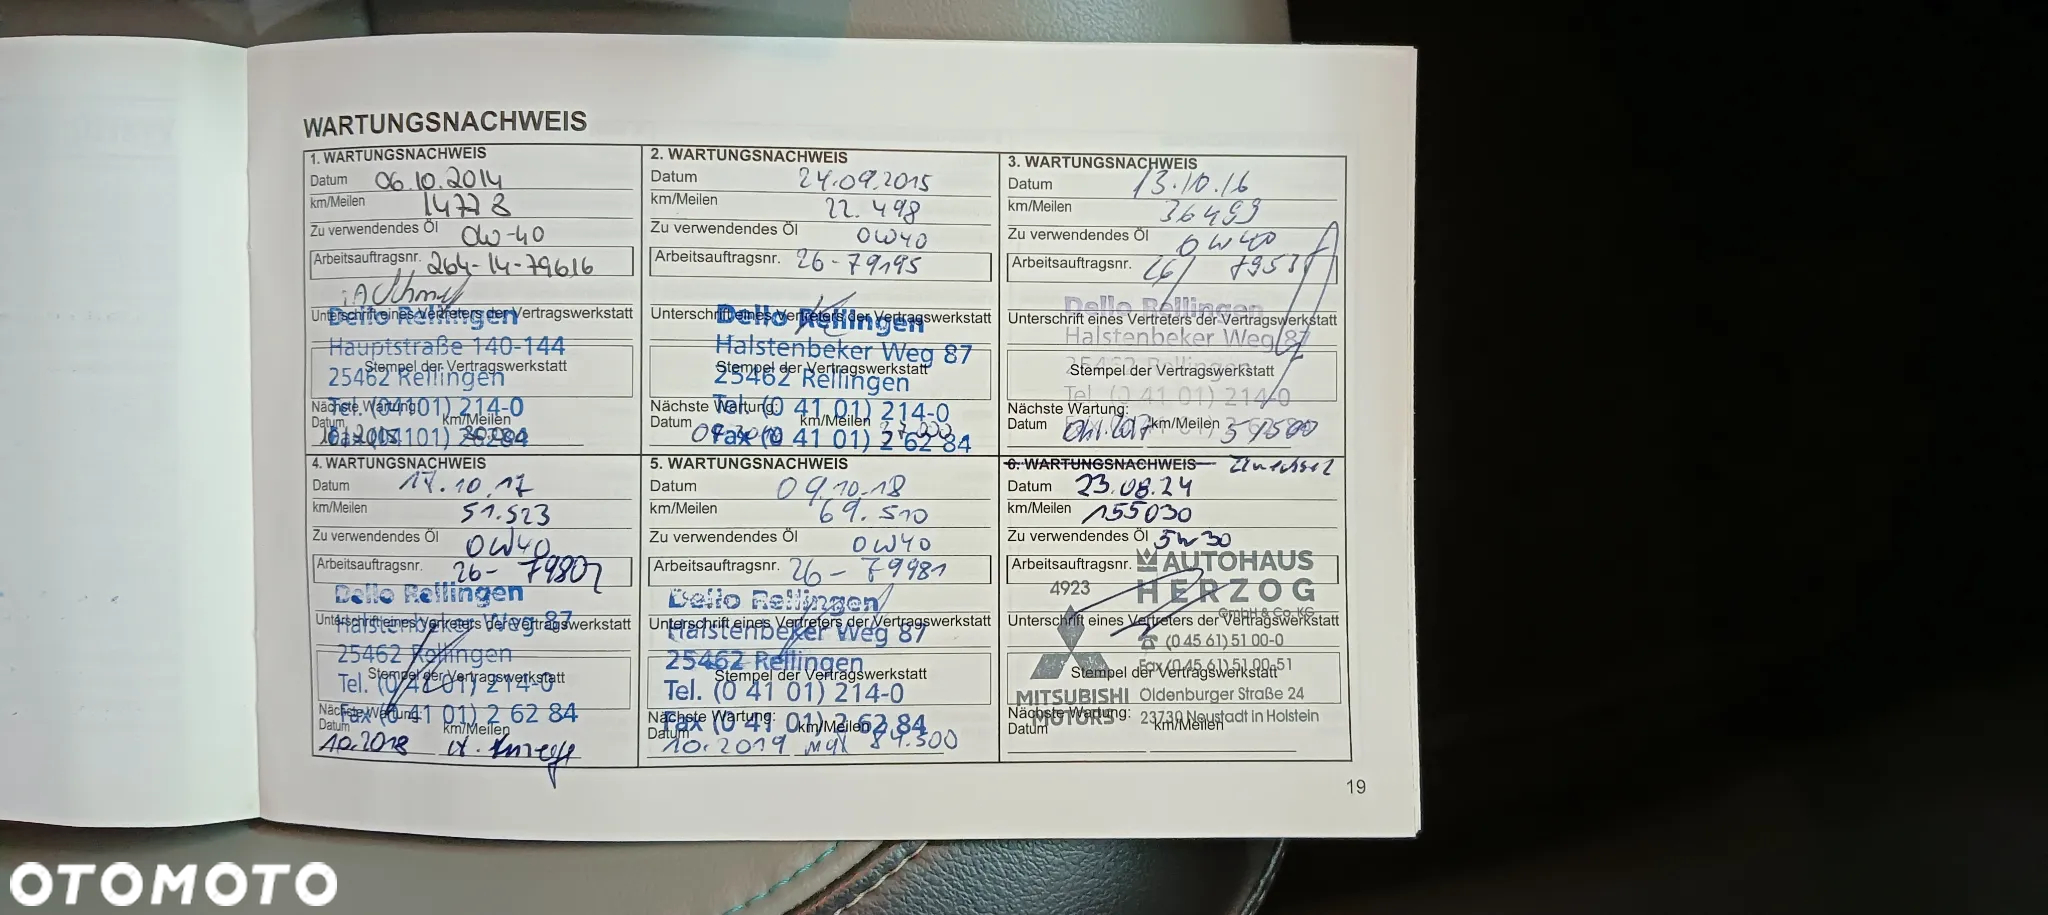 WARTUNGSNACHWEIS
1. WARTUNGSNACHWEIS
Datum 06.10.2014
km/Meilen 14778
Zu verwendendes Öl 0W-40
Arbeitsauftragsnr. 264-14-79616
Unterschrift eines Vertreters der Vertragswerkstatt
Dello Rellingen
Hauptstraße 140-144
Stempel der Vertragswerkstatt
25462 Rellingen
Tel. (04101) 214-0
Nächste Wartung:
Datum km/Meilen
Fax (04101) 26284
2. WARTUNGSNACHWEIS
Datum 24.09.2015
km/Meilen 22.498
Zu verwendendes Öl 0W40
Arbeitsauftragsnr. 26-79195
Unterschrift eines Vertreters der Vertragswerkstatt
Dello Rellingen
Halstenbeker Weg 87
Stempel der Vertragswerkstatt
25462 Rellingen
Nächste Wartung:
Tel. (0 41 01) 214-0
Datum km/Meilen
Fax (0 41 01) 2 62 84
3. WARTUNGSNACHWEIS
Datum 13.10.16
km/Meilen 36499
Zu verwendendes Öl 0W40
Arbeitsauftragsnr.
Dello Rellingen
Unterschrift eines Vertreters der Vertragswerkstatt
Halstenbeker Weg 87
25462 Rellingen
Stempel der Vertragswerkstatt
Tel. (0 41 01) 214-0
Nächste Wartung:
Datum km/Meilen 51500
4. WARTUNGSNACHWEIS
Datum 17.10.17
km/Meilen 51.523
Zu verwendendes Öl 0W40
Arbeitsauftragsnr. 26-
Dello Rellingen
Unterschrift eines Vertreters der Vertragswerkstatt
Halstenbeker Weg 87
25462 Rellingen
Stempel der Vertragswerkstatt
Tel. (0 41 01) 214-0
Nächste Wartung:
Fax (0 41 01) 2 62 84
Datum km/Meilen
10.2018
5. WARTUNGSNACHWEIS
Datum 09.10.18
km/Meilen 69.510
Zu verwendendes Öl 0W40
Arbeitsauftragsnr. 26-79981
Dello Rellingen
Unterschrift eines Vertreters der Vertragswerkstatt
Halstenbeker Weg 87
25462 Rellingen
Stempel der Vertragswerkstatt
Tel. (0 41 01) 214-0
Nächste Wartung:
Fax (0 41 01) 2 62 84
Datum km/Meilen
10.2019 84.500
6. WARTUNGSNACHWEIS
Datum 23.08.24
km/Meilen 155030
Zu verwendendes Öl 5w30
AUTOHAUS
Arbeitsauftragsnr.
4923 HERZOG
GmbH & Co. KG
Unterschrift eines Vertreters der Vertragswerkstatt
☎ (0 45 61) 51 00-0
Fax (0 45 61) 51 00-51
Stempel der Vertragswerkstatt
MITSUBISHI Oldenburger Straße 24
MOTORS 23730 Neustadt in Holstein
Nächste Wartung:
Datum km/Meilen
19
OTOMOTO